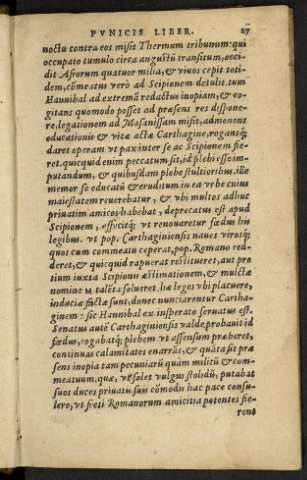 PVNICIS LIBER. 27
noctu contra eos misit Thermum tribunum: qui
occupato tumulo circa angustũ transitum, occi
dit Afrorum quatuor milia, & viuos cepit toti-
dem, cõmeatus verò ad Scipionem detulit. tum
Hannibal ad extremã redactus inopiam, & co-
gitans quomodo posset ad præsens res disponé-
re, legationem ad Masanissam misit, admonens
educationis & vitæ actæ Carthagine, rogansq́;
daret operam vt pax inter se ac Scipionem fie-
ret. quicquid enim peccatum sit, id plebi esse im-
putandum, & quibusdam plebe stultioribus. ille
memor se educatũ & eruditum in ea vrbe cuius
maiestatem reuerebatur, & vbi multos adhuc
priuatim amicos habebat, deprecatus est apud
Scipionem, effecitq́; vt renouaretur fœdus his
legibus. vt pop. Carthaginiensis naues virosq́;
quos cum commeatu ceperat, pop. Romano red-
deret, & quicquid rapuerat restitueret, aut pro
tium iuxta Scipionis æstimationem, & mulctæ
nomine M. talẽta solueret. hæ leges vbi placuere,
induciæ factæ sunt, donec nunciarentur Cartha-
ginem: sic Hannibal ex insperato seruatus est.
Senatus autẽ Carthaginiensis valde probauit id
fœdus, rogabatq́; plebem vt assensum præberet,
continuas calamitates enarrãs, & quãta sit præ
sens inopia tam pecuniarũ quàm militũ & com-
meatuum. quæ, vt solet vulgus stolidũ, putabat
suos duces priuatis suis cõmodis hac pace consu-
lere, vt freti Romanorum amicitia potentes fie-
rent